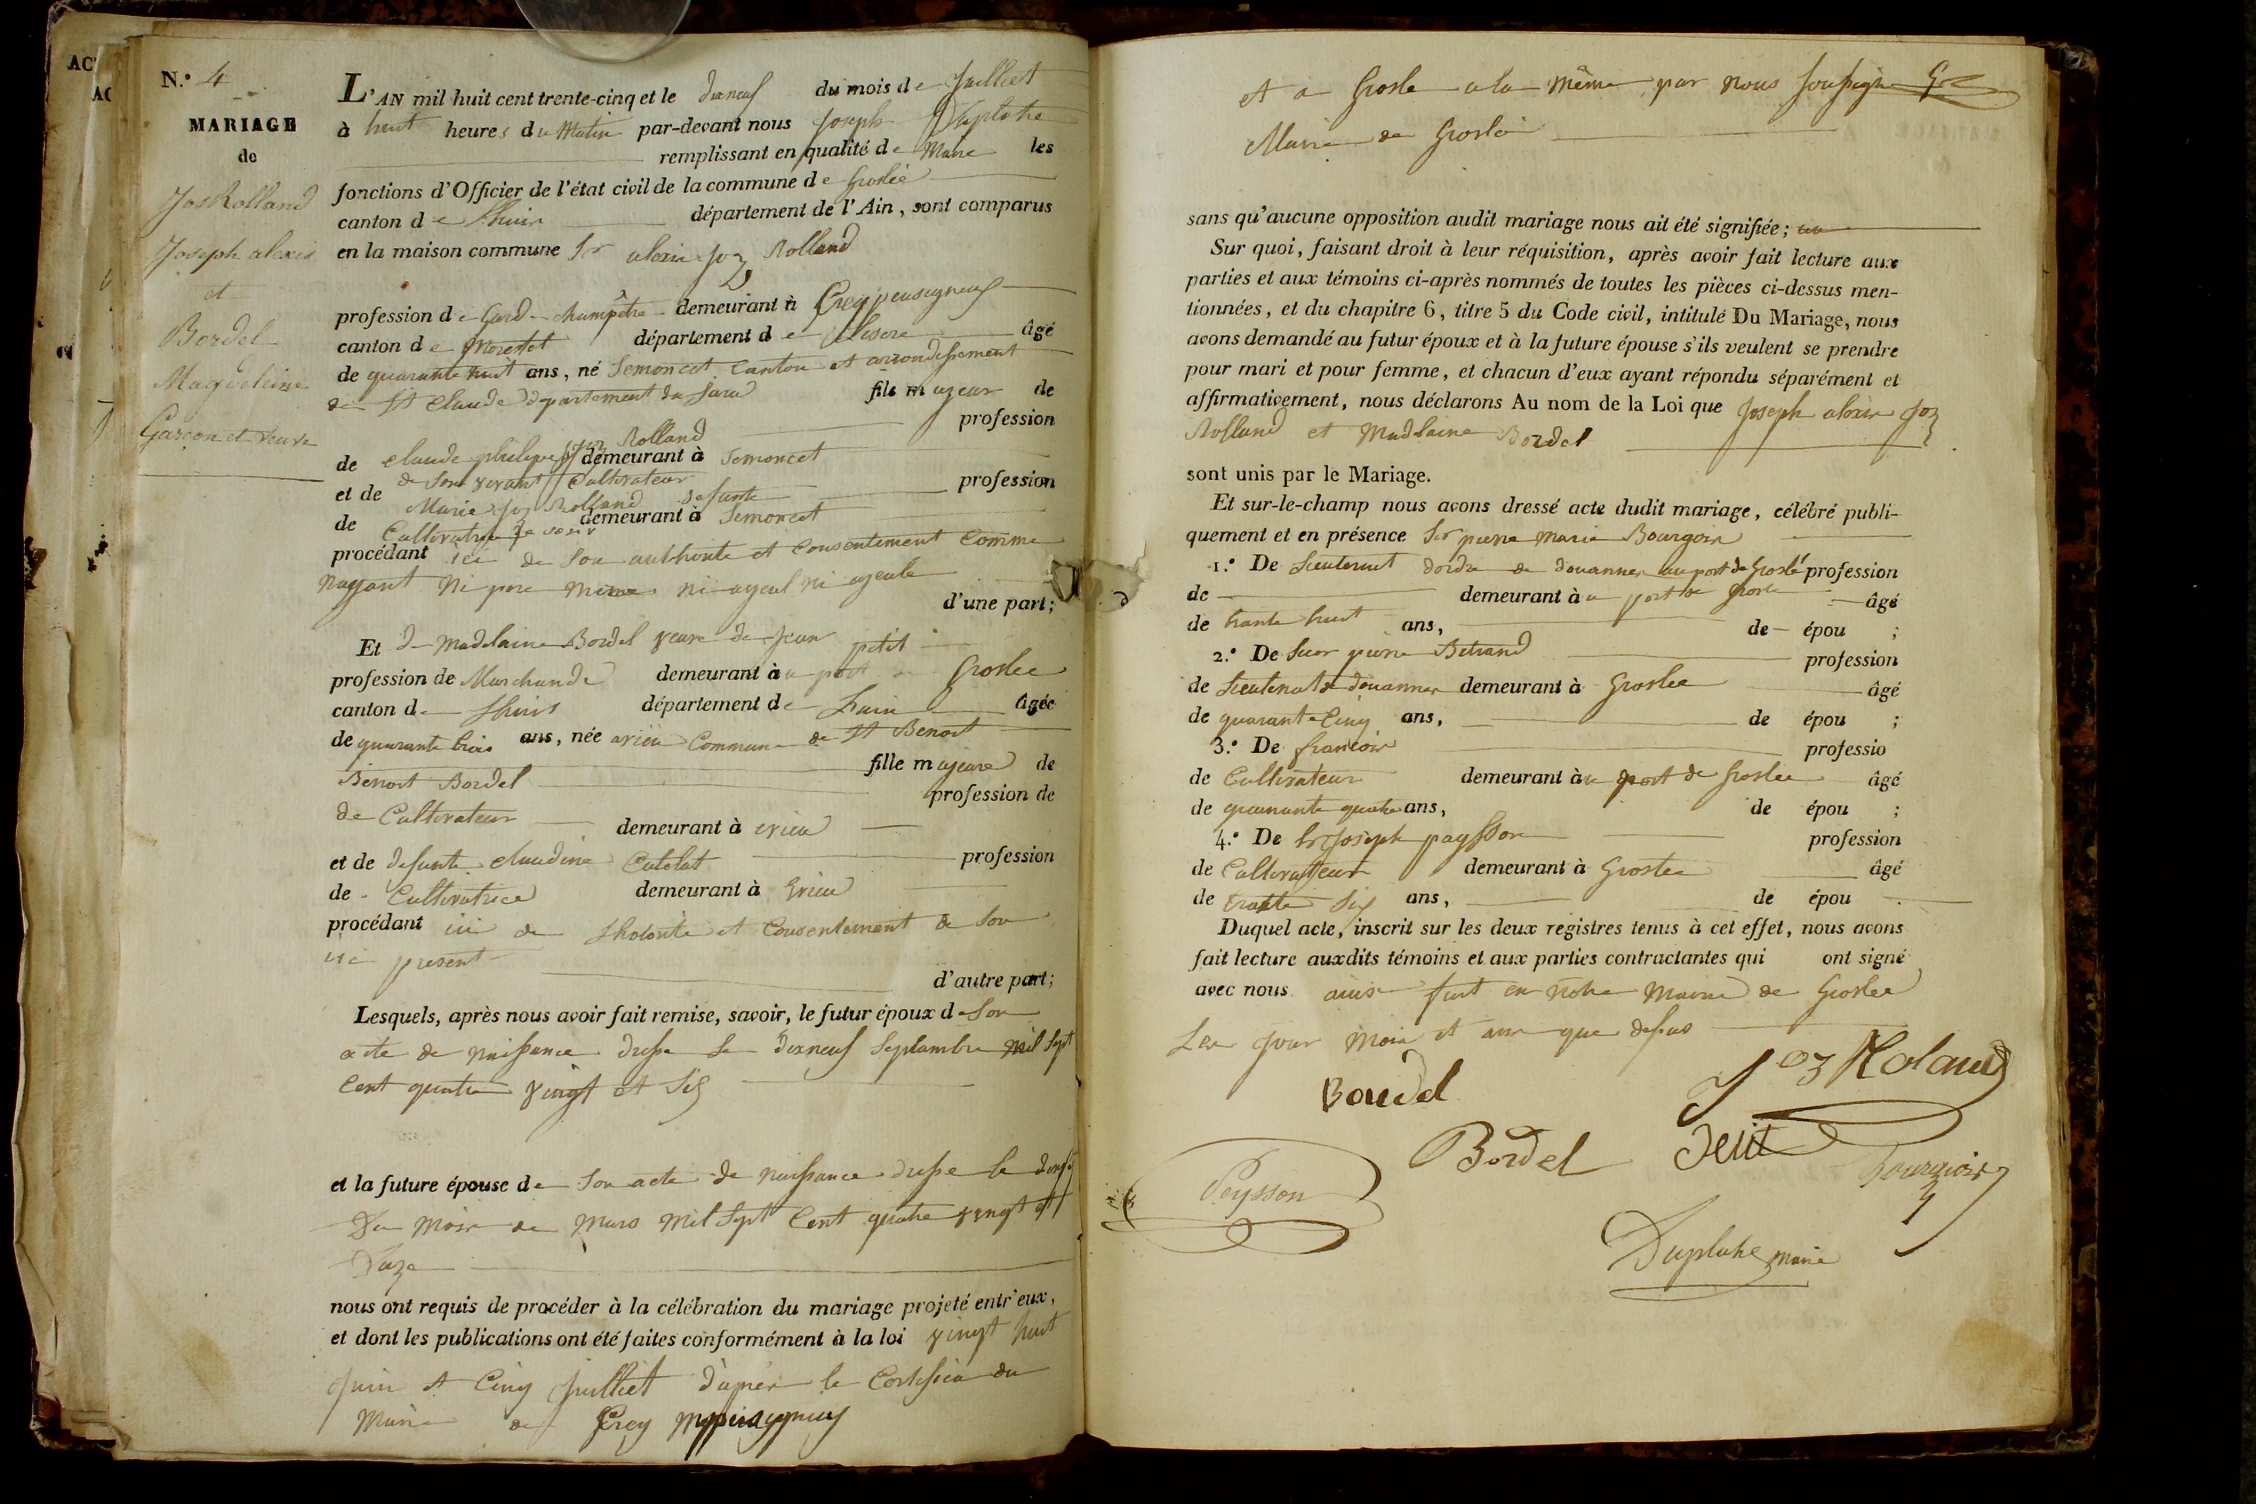 N.° 4
MARIAGE
de
Jos Rolland
Joseph alexis
et
Bordel
Magdeleine
Garçon et veuve
L'AN mil huit cent trente-cinq et le dixneuf du mois de Juilliet
à huit heures du Matin par-devant nous Joseph Duplatre
remplissant en qualité de Maire les
fonctions d'Officier de l'état civil de la commune de Groslée
canton de Lhuis département de l'Ain, sont comparus
en la maison commune Sr alexis Joz Rolland
profession de Gard champêtre demeurant à Creys
canton de Morestel département de Lisere âgé
de quarante huit ans, né Semoncet Canton et arrondissement
de St Claude département du Jura fils majeur de
profession
de Claude philipe Joz Rolland demeurant à Semoncet
de Son vivant Cultivateur
et de Marie Joz Rolland defunte profession
de Cultivatrice demeurant à Semoncet
procédant ici de Son authorite et Consentement Comme
nayant Ni pere ni mere ni ayeul ni ayeule
d'une part;
Et d Madelaine Bordel veuve de Jean petit
profession de Marchande demeurant à u port de Groslee
canton de Lhuis département de Lain âgée
de quarante trois ans, née a Commune de St Benoit
fille majeure de
Benoit Bordel profession de
de Cultivateur demeurant à
et de defunte claudine profession
de Cultivatrice demeurant à
procédant ici de Lhotorite et Consentement de Son
present
d'autre part;
Lesquels, après nous avoir fait remise, savoir, le futur époux de Son
acte de naissance dresse le dixneuf Septambre mil Sept
Cent quatre vingt et Six
et la future épouse de Son acte de naissance dresse le
Du Mois de Mars Mil Sept Cent quatre vingt et
nous ont requis de procéder à la célébration du mariage projeté entr'eux,
et dont les publications ont été faites conformément à la loi vingt huit
Juin et Cinq Juilliet d'après le du
Maire de
et a Grosle a la même par nous Soussigné
Maire de Groslei
sans qu'aucune opposition audit mariage nous ait été signifiée;
Sur quoi, faisant droit à leur réquisition, après avoir fait lecture aux
parties et aux témoins ci-après nommés de toutes les pièces ci-dessus men-
tionnées, et du chapitre 6, titre 5 du Code civil, intitulé Du Mariage, nous
avons demandé au futur époux et à la future épouse s'ils veulent se prendre
pour mari et pour femme, et chacun d'eux ayant répondu séparément et
affirmativement, nous déclarons Au nom de la Loi que Joseph alexis Joz
Rolland et Madlaine Bordel
sont unis par le Mariage.
Et sur-le-champ nous avons dressé acte dudit mariage, célébré publi-
quement et en présence Sr pierre marie Bourgoin
1.° De Lieutenent dordre de douannes au port de Groslé profession
de demeurant à u port de Grosle âgé
de trante huit ans, de épou ;
2.° De Sieur pierre Betrand profession
de Lieutenat de douannes demeurant à Groslee âgé
de quarante Cinq ans, de épou ;
3.° De francois professio
de Cultivateur demeurant à u port de Groslee âgé
de quarante quatre ans, de épou ;
4.° De Sr Joseph paysson profession
de Cultivateur demeurant à Groslee âgé
de trante Six ans, de épou
Duquel acte, inscrit sur les deux registres tenus à cet effet, nous avons
fait lecture auxdits témoins et aux parties contractantes qui ont signé
avec nous ainsi fait en notre Mairie de Groslee
Les Jour Mois et an que dessus
Joz Roland
Bordel
Bordel Petit
Bourgoin
Peysson
Duplatre maire